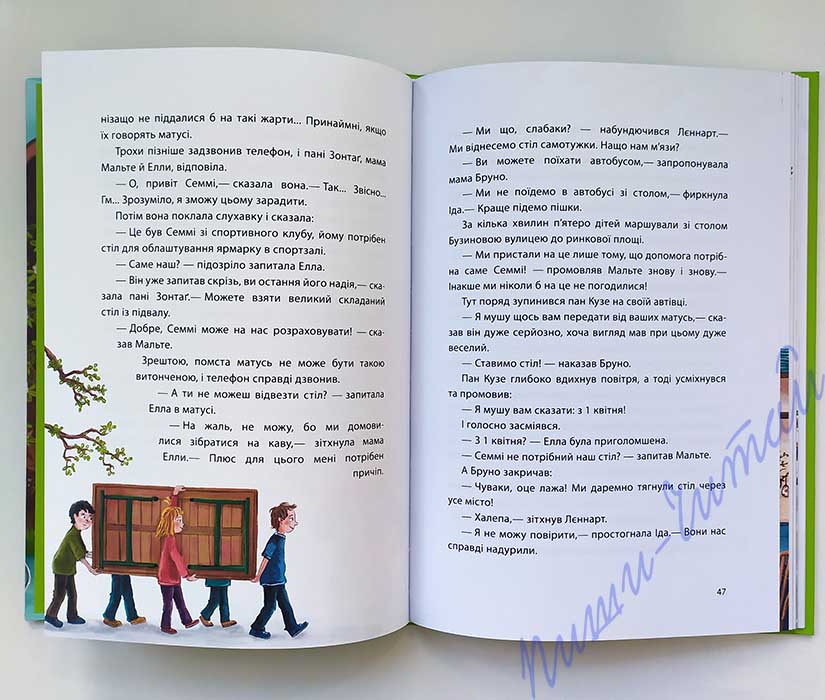 нізащо не піддалися б на такі жарти... Принаймні, якщо
їх говорять матусі.
Трохи пізніше задзвонив телефон, і пані Зонтаґ, мама
Мальте й Елли, відповіла.
— О, привіт Семмі,— сказала вона.— Так... Звісно...
Гм... Зрозуміло, я зможу цьому зарадити.
Потім вона поклала слухавку і сказала:
— Це був Семмі зі спортивного клубу, йому потрібен
стіл для облаштування ярмарку в спортзалі.
— Саме наш? — підозріло запитала Елла.
— Він уже запитав скрізь, ви остання його надія,— ска-
зала пані Зонтаґ.— Можете взяти великий складаний
стіл із підвалу.
— Добре, Семмі може на нас розраховувати! — ска-
зав Мальте.
Зрештою, помста матусь не може бути такою
витонченою, і телефон справді дзвонив.
— А ти не можеш відвезти стіл? — запитала
Елла в матусі.
— На жаль, не можу, бо ми домови-
лися зібратися на каву,— зітхнула мама
Елли.— Плюс для цього мені потрібен
причіп.
— Ми що, слабаки? — набундючився Лєннарт.—
Ми віднесемо стіл самотужки. Нащо нам м'язи?
— Ви можете поїхати автобусом,— запропонувала
мама Бруно.
— Ми не поїдемо в автобусі зі столом,— фиркнула
Іда.— Краще підемо пішки.
За кілька хвилин п'ятеро дітей маршували зі столом
Бузиновою вулицею до ринкової площі.
— Ми пристали на це лише тому, що допомога потріб-
на саме Семмі! — промовляв Мальте знову і знову.—
Інакше ми ніколи б на це не погодилися!
Тут поряд зупинився пан Кузе на своїй автівці.
— Я мушу щось вам передати від ваших матусь,— ска-
зав він дуже серйозно, хоча вигляд мав при цьому дуже
веселий.
— Ставимо стіл! — наказав Бруно.
Пан Кузе глибоко вдихнув повітря, а тоді усміхнувся
та промовив:
— Я мушу вам сказати: з 1 квітня!
І голосно засміявся.
— З 1 квітня? — Елла була приголомшена.
— Семмі не потрібний наш стіл? — запитав Мальте.
А Бруно закричав:
— Чуваки, оце лажа! Ми даремно тягнули стіл через
усе місто!
— Халепа,— зітхнув Лєннарт.
— Я не можу повірити,— простогнала Іда.— Вони нас
справді надурили.
47
Пиши-Читай